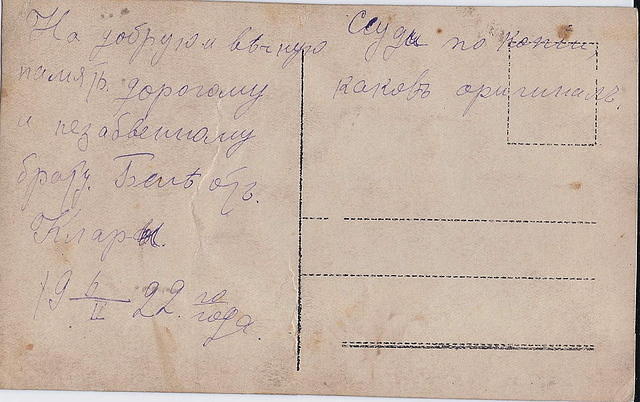 На добрую и вѣчную
память дорогому
и незабвенному
брату. Белѣ отъ.
Клары.
19 6/II 22 го
года.
Суди по копіи,
каковъ оригиналъ.